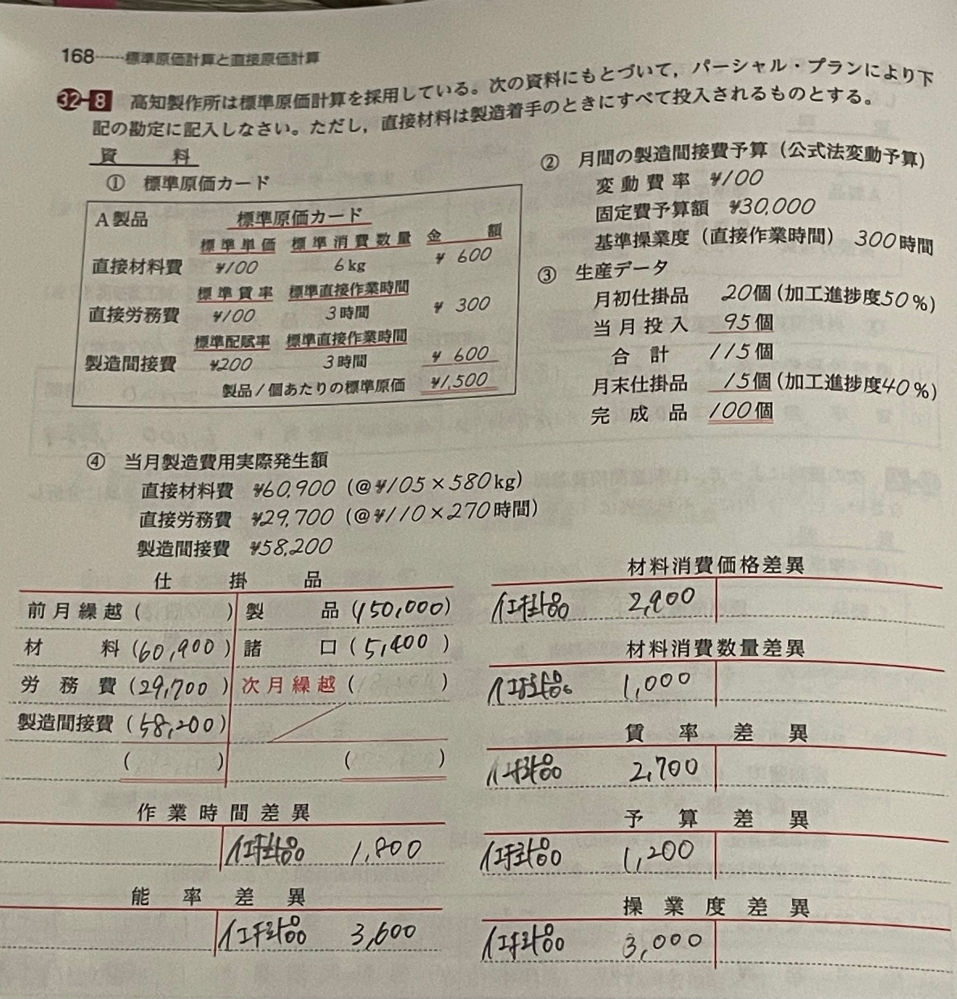 168……標準原価計算と直接原価計算
32-8 高知製作所は標準原価計算を採用している。次の資料にもとづいて，パーシャル・プランにより下
記の勘定に記入しなさい。ただし，直接材料は製造着手のときにすべて投入されるものとする。
資 料
① 標準原価カード
A製品 標準原価カード
標準単価 標準消費数量 金 額
直接材料費 ¥100 6kg ¥600
標準賃率 標準直接作業時間
直接労務費 ¥100 3時間 ¥300
標準配賦率 標準直接作業時間
製造間接費 ¥200 3時間 ¥600
製品1個あたりの標準原価 ¥1,500
② 月間の製造間接費予算（公式法変動予算）
変動費率 ¥100
固定費予算額 ¥30,000
基準操業度（直接作業時間） 300時間
③ 生産データ
月初仕掛品 20個（加工進捗度50%）
当月投入 95個
合計 115個
月末仕掛品 15個（加工進捗度40%）
完成品 100個
④ 当月製造費用実際発生額
直接材料費 ¥60,900（@¥105×580kg）
直接労務費 ¥29,700（@¥110×270時間）
製造間接費 ¥58,200
仕 掛 品
前月繰越（ ） 製 品（150,000）
材 料（60,900） 諸 口（5,400）
労務費（29,700） 次月繰越（ ）
製造間接費（58,200）
（ ） （ ）
作業時間差異
仕掛品 1,800
能率差異
仕掛品 3,600
材料消費価格差異
仕掛品 2,900
材料消費数量差異
仕掛品 1,000
賃率差異
仕掛品 2,700
予算差異
仕掛品 1,200
操業度差異
仕掛品 3,000